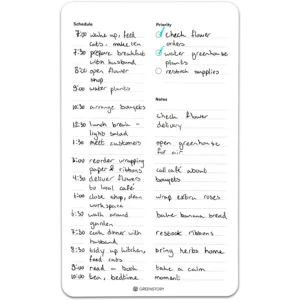 Schedule
7:00 wake up, feed
cats, make tea
7:30 prepare breakfast
with husband
8:20 open flower
shop
9:00 water plants
10:30 arrange bouquets
12:30 lunch break -
light salad
1:30 meet customers
4:00 reorder wrapping
paper & ribbons
4:30 deliver flowers
to local café
6:00 close shop, clean
workspace
6:30 walk around
garden
7:00 cook dinner with
husband
8:30 tidy up kitchen,
feed cats
9:00 read a book
10:00 tea, bedtime
Priority
check flower
orders
water greenhouse
plants
restock supplies
Notes
check flower
delivery
open greenhouse
for air
call café about
bouquets
wrap vases
bake banana bread
restock ribbons
bring herbs home
take a calm
moment
GREENSTORY